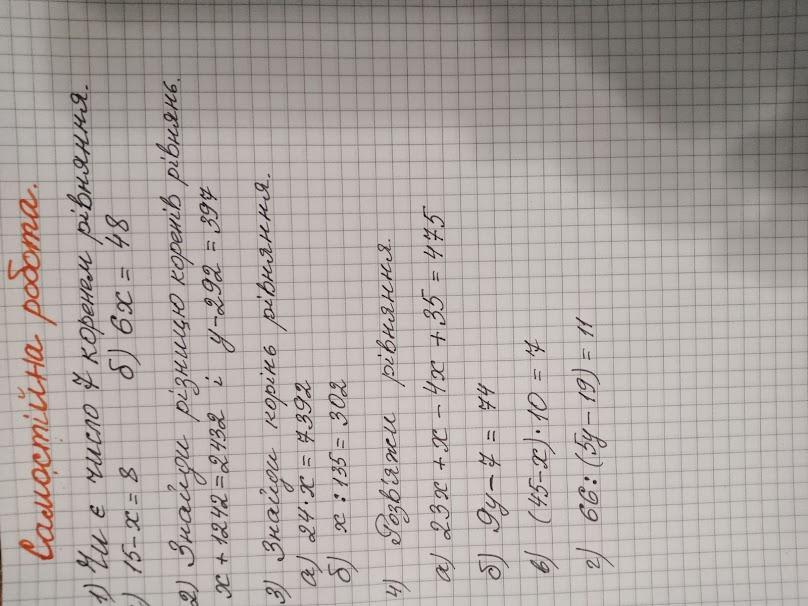 Самостійна робота.
1) Чи є число 7 коренем рівняння.
) 15-x=8 б) 6x=48
2) Знайди різницю коренів рівнянь.
x+1242=2432 і y-292=397
3) Знайди корінь рівняння.
а) 24·x=7392
б) x:135=302
4) Розв'яжи рівняння.
а) 23x+x-4x+35=475
б) 9y-7=74
в) (45-x)·10=7
г) 66:(5y-19)=11